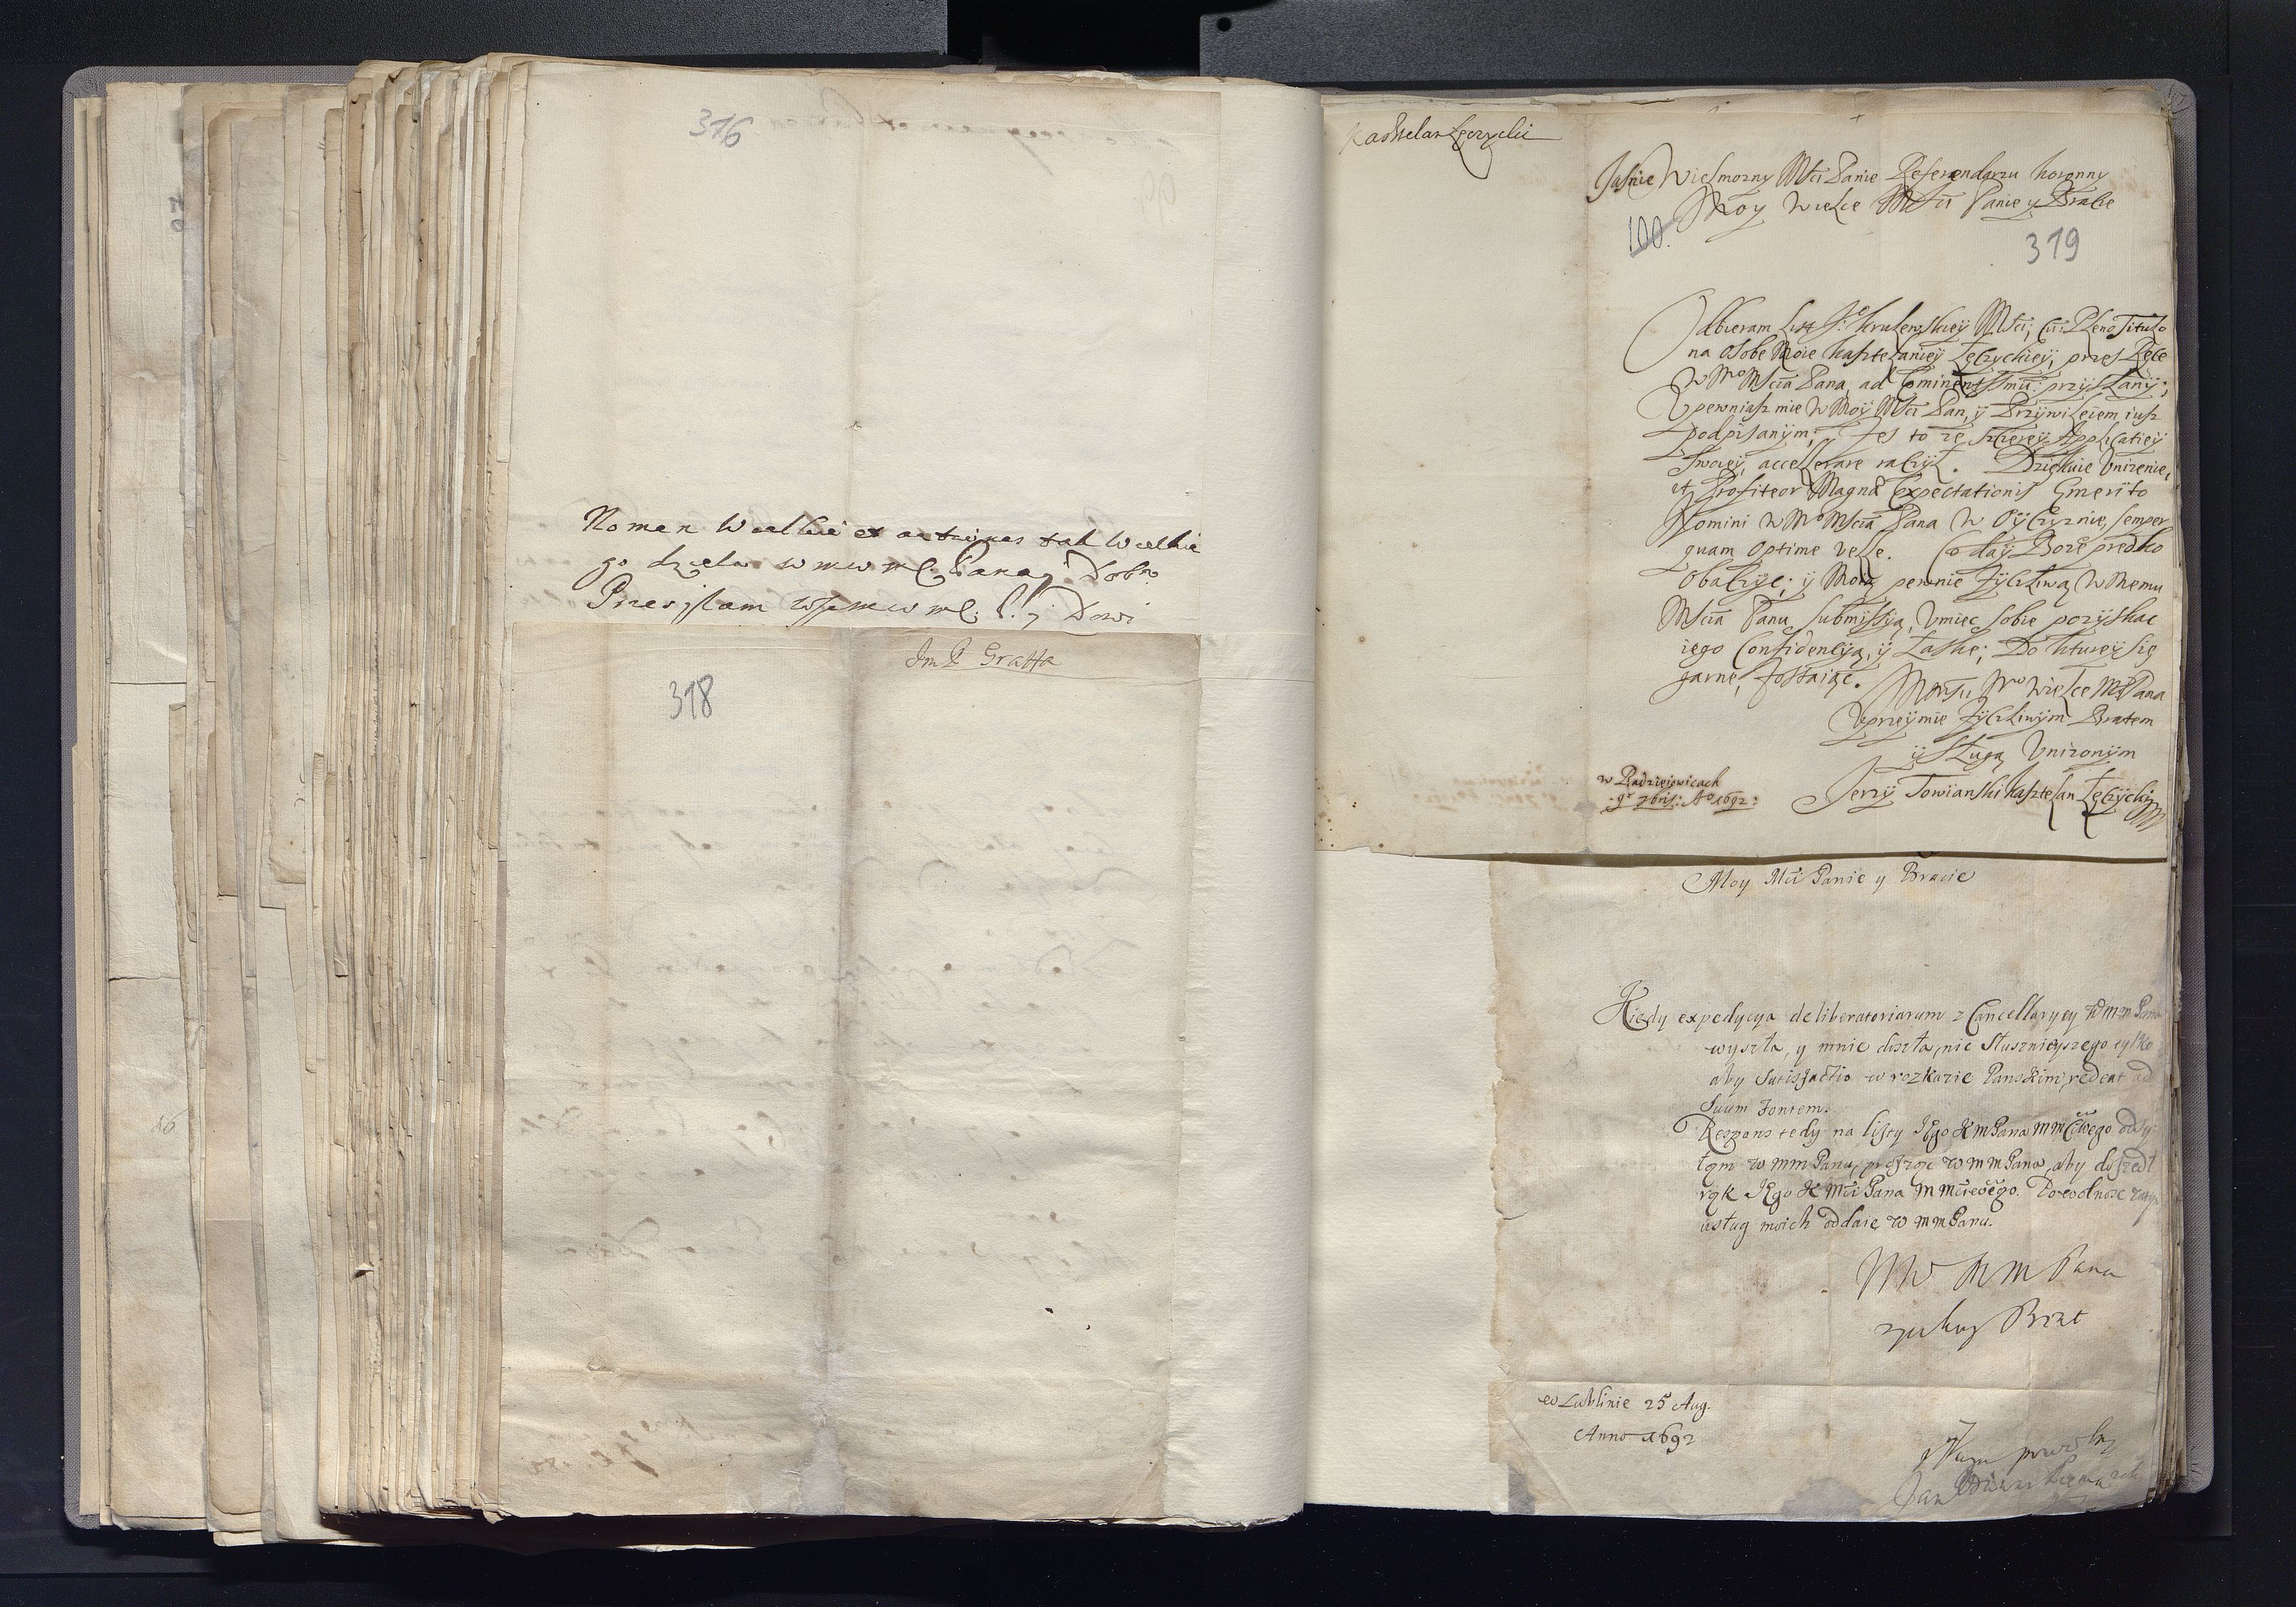 316
Nomen Wielkie et autores tak Wielkie
go dzieła w m w mC Pana y Dobr
Przesyłam w m w mC. P. y Dowi
Im P Gratta
318
Kasztelan Łęczycki
Jasnie Wielmozny Mści Panie Referendarzu koronny
Moy Wielce Mści Panie y Bracie
100.
319
Odbieram List Je° krulewskiey Mści, cū Pleno Titulo
na osobe Moie kasztelaniey Łęczyckiey, przes Ręce
W M° Mścia Pana, ad Eminentissmū: przysłany;
Upewniasz mie W Moy Mści Pan, y Przywileiem iusz
podpisanym; Jes to ze szczerey Applicatiey
Swoiey, accellerare raczył. Dziękuie Unizenie,
et Profiteor Magnæ Expectationis Emerito
Nomini W M° Mścia Pana w Oyczyznie, semper
quam Optime velle. Co day Boże prędko
Obaczyc; y Moią pewnie życzliwą W Memu
Mścia Panu Submissyą, Umiec sobie pozyskac
iego Confidencyą, y Łaske; Do kturey się
garne, zostaiąc.
Wielce M Pana
Uprzeymie życzliwym Bratem
y Sługą Unizonym
w Radzieiowicach
9 7bris: A° 1692:
Jerzy Towianski kasztelan Łęczycki
Moy Mći Panie y Bracie
Kiedy expedycya deliberatoriarum z Cancellaryey W m m Pana
wyszła, y mnie doszła, nic Słusznieyszego tylko
aby Satisfactio w rozkazie Panskim, redeat ad
Suum Fontem.
Respons tedy na listy Jgo K m Pana m mćiwego odsy
łam W m m Panu, proszoc W m m Pana, aby doszedł
rąk Jgo K Mći Pana M mćiwego. Powolnosc zatym
usług moich oddaie W m m Panu.
W M M Pana
Brat
w Lublinie 25 Aug.
Anno 1692
y Sługa powolny
Jan